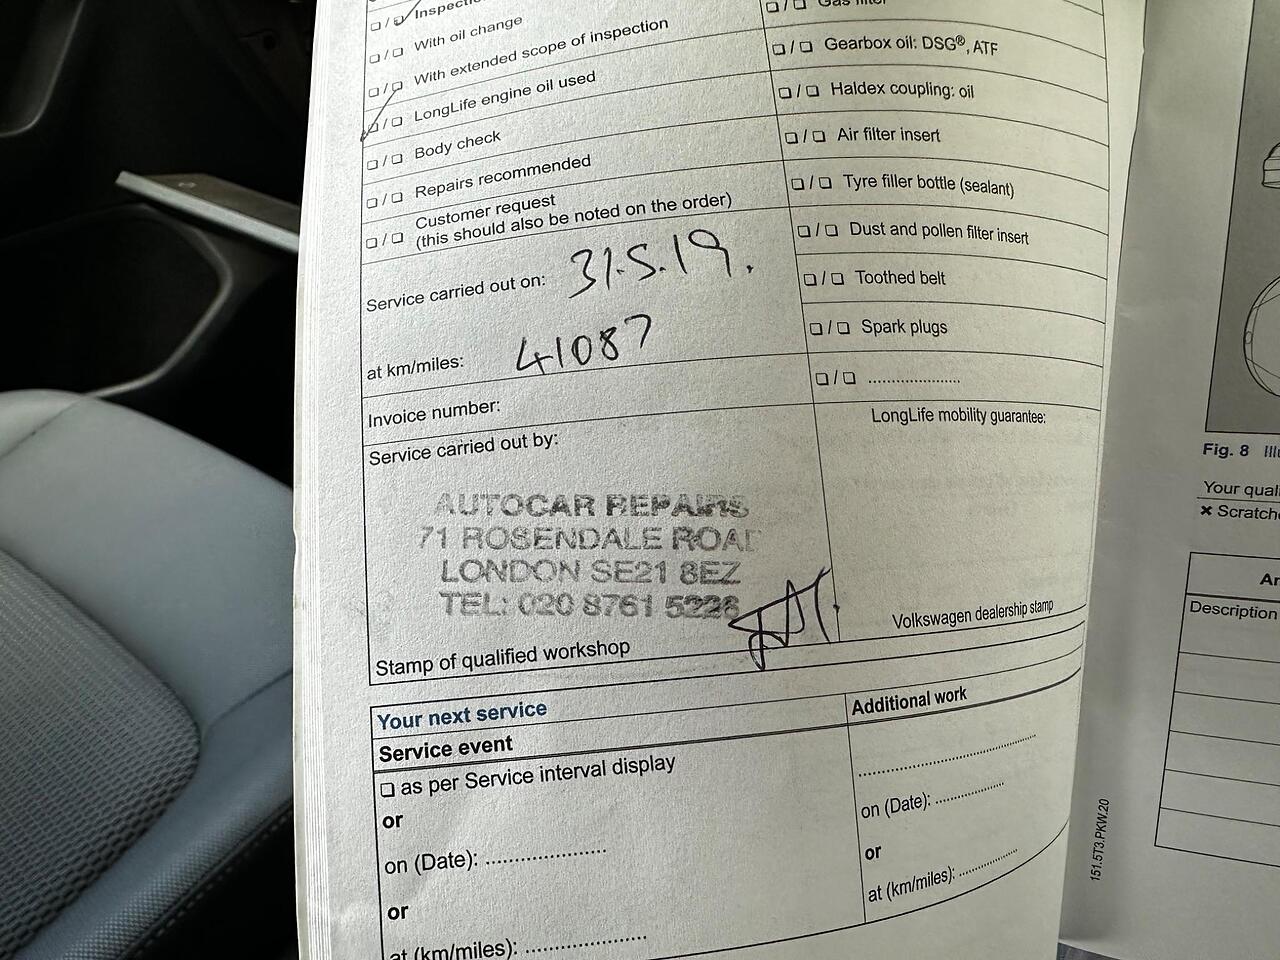 ☐ / ☑ Inspectio
☐ / ☐ With oil change
☐ / ☐ With extended scope of inspection
☑ / ☐ LongLife engine oil used
☐ / ☐ Body check
☐ / ☐ Repairs recommended
☐ / ☐ Customer request
(this should also be noted on the order)
Service carried out on: 31.5.19.
at km/miles: 41087
Invoice number:
Service carried out by:
AUTOCAR REPAIRS
71 ROSENDALE ROAD
LONDON SE21 8EZ
TEL: 020 8761 5226
Stamp of qualified workshop
☐ / ☐ Gas filter
☐ / ☐ Gearbox oil: DSG®, ATF
☐ / ☐ Haldex coupling: oil
☐ / ☐ Air filter insert
☐ / ☐ Tyre filler bottle (sealant)
☐ / ☐ Dust and pollen filter insert
☐ / ☐ Toothed belt
☐ / ☐ Spark plugs
☐ / ☐ ......................
LongLife mobility guarantee:
Volkswagen dealership stamp
Your next service
Service event
☐ as per Service interval display
or
on (Date): ......................
or
at (km/miles): ......................
Additional work
................................
on (Date): ................
or
at (km/miles): ..............
151.5T3.PKW.20
Fig. 8 Illu
Your quali
× Scratche
Ar
Description